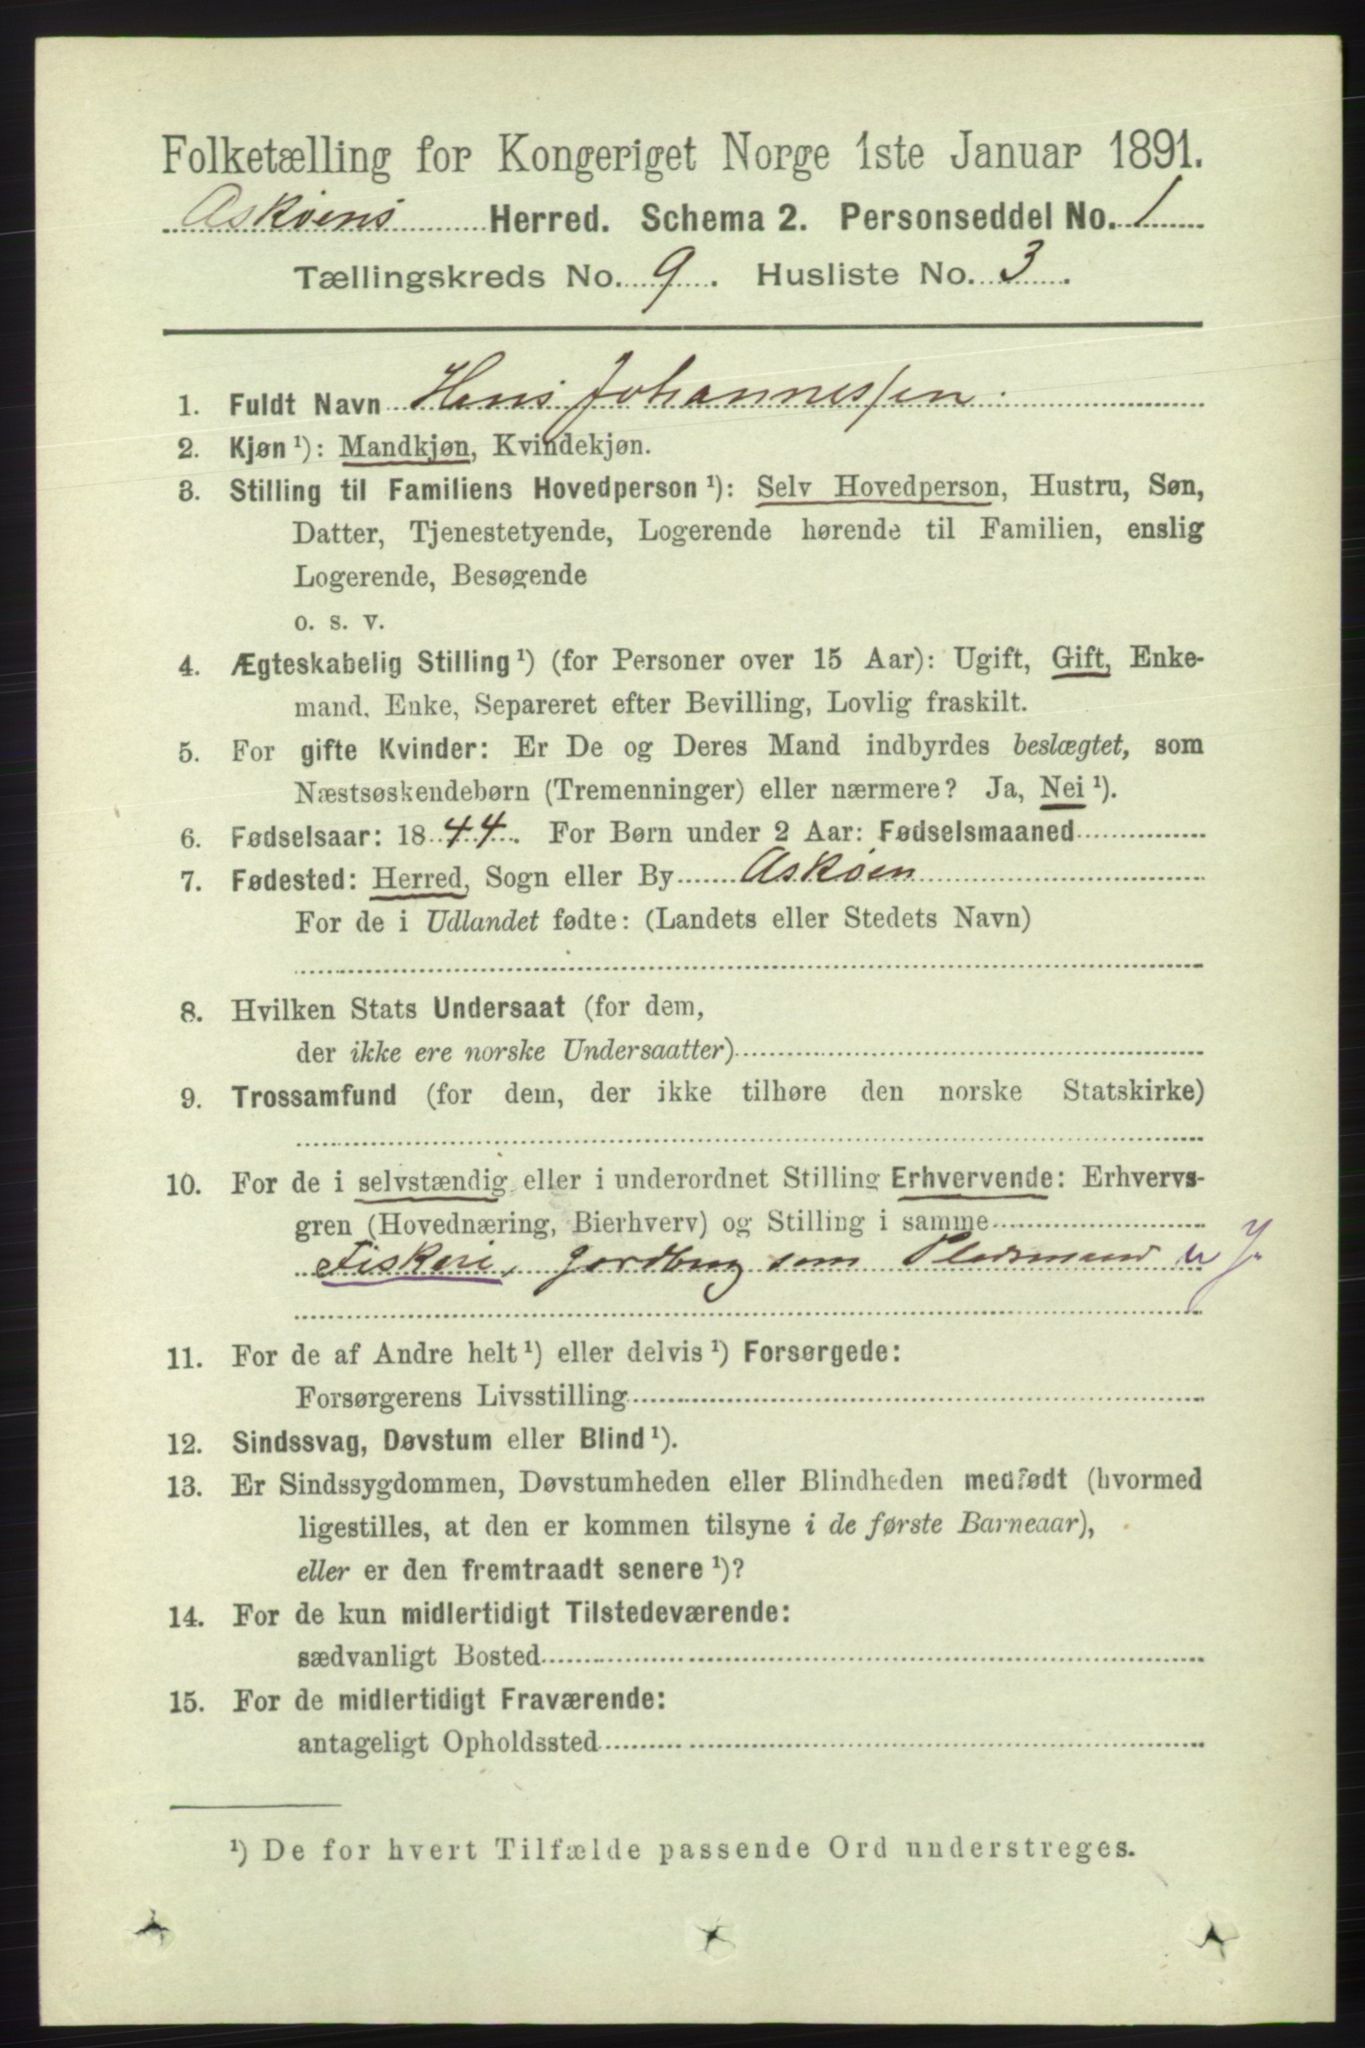 Folketælling for Kongeriget Norge 1ste Januar 1891.
Askøens Herred. Schema 2. Personseddel No. 1
Tællingskreds No. 9. Husliste No. 3.
1. Fuldt Navn Hans Johannessen.
2. Kjøn ¹): Mandkjøn, Kvindekjøn.
3. Stilling til Familiens Hovedperson ¹): Selv Hovedperson, Hustru, Søn,
Datter, Tjenestetyende, Logerende hørende til Familien, enslig
Logerende, Besøgende
o. s. v.
4. Ægteskabelig Stilling ¹) (for Personer over 15 Aar): Ugift, Gift, Enke-
mand, Enke, Separeret efter Bevilling, Lovlig fraskilt.
5. For gifte Kvinder: Er De og Deres Mand indbyrdes beslægtet, som
Næstsøskendebørn (Tremenninger) eller nærmere? Ja, Nei ¹).
6. Fødselsaar: 1844. For Børn under 2 Aar: Fødselsmaaned
7. Fødested: Herred, Sogn eller By Askøen
For de i Udlandet fødte: (Landets eller Stedets Navn)
8. Hvilken Stats Undersaat (for dem,
der ikke ere norske Undersaatter)
9. Trossamfund (for dem, der ikke tilhøre den norske Statskirke)
10. For de i selvstændig eller i underordnet Stilling Erhvervende: Erhvervs-
gren (Hovednæring, Bierhverv) og Stilling i samme
Fiskeri, Jordbrug som Pladsmand u J.
11. For de af Andre helt ¹) eller delvis ¹) Forsørgede:
Forsørgerens Livsstilling
12. Sindssvag, Døvstum eller Blind ¹).
13. Er Sindssygdommen, Døvstumheden eller Blindheden medfødt (hvormed
ligestilles, at den er kommen tilsyne i de første Barneaar),
eller er den fremtraadt senere ¹)?
14. For de kun midlertidigt Tilstedeværende:
sædvanligt Bosted
15. For de midlertidigt Fraværende:
antageligt Opholdssted
¹) De for hvert Tilfælde passende Ord understreges.